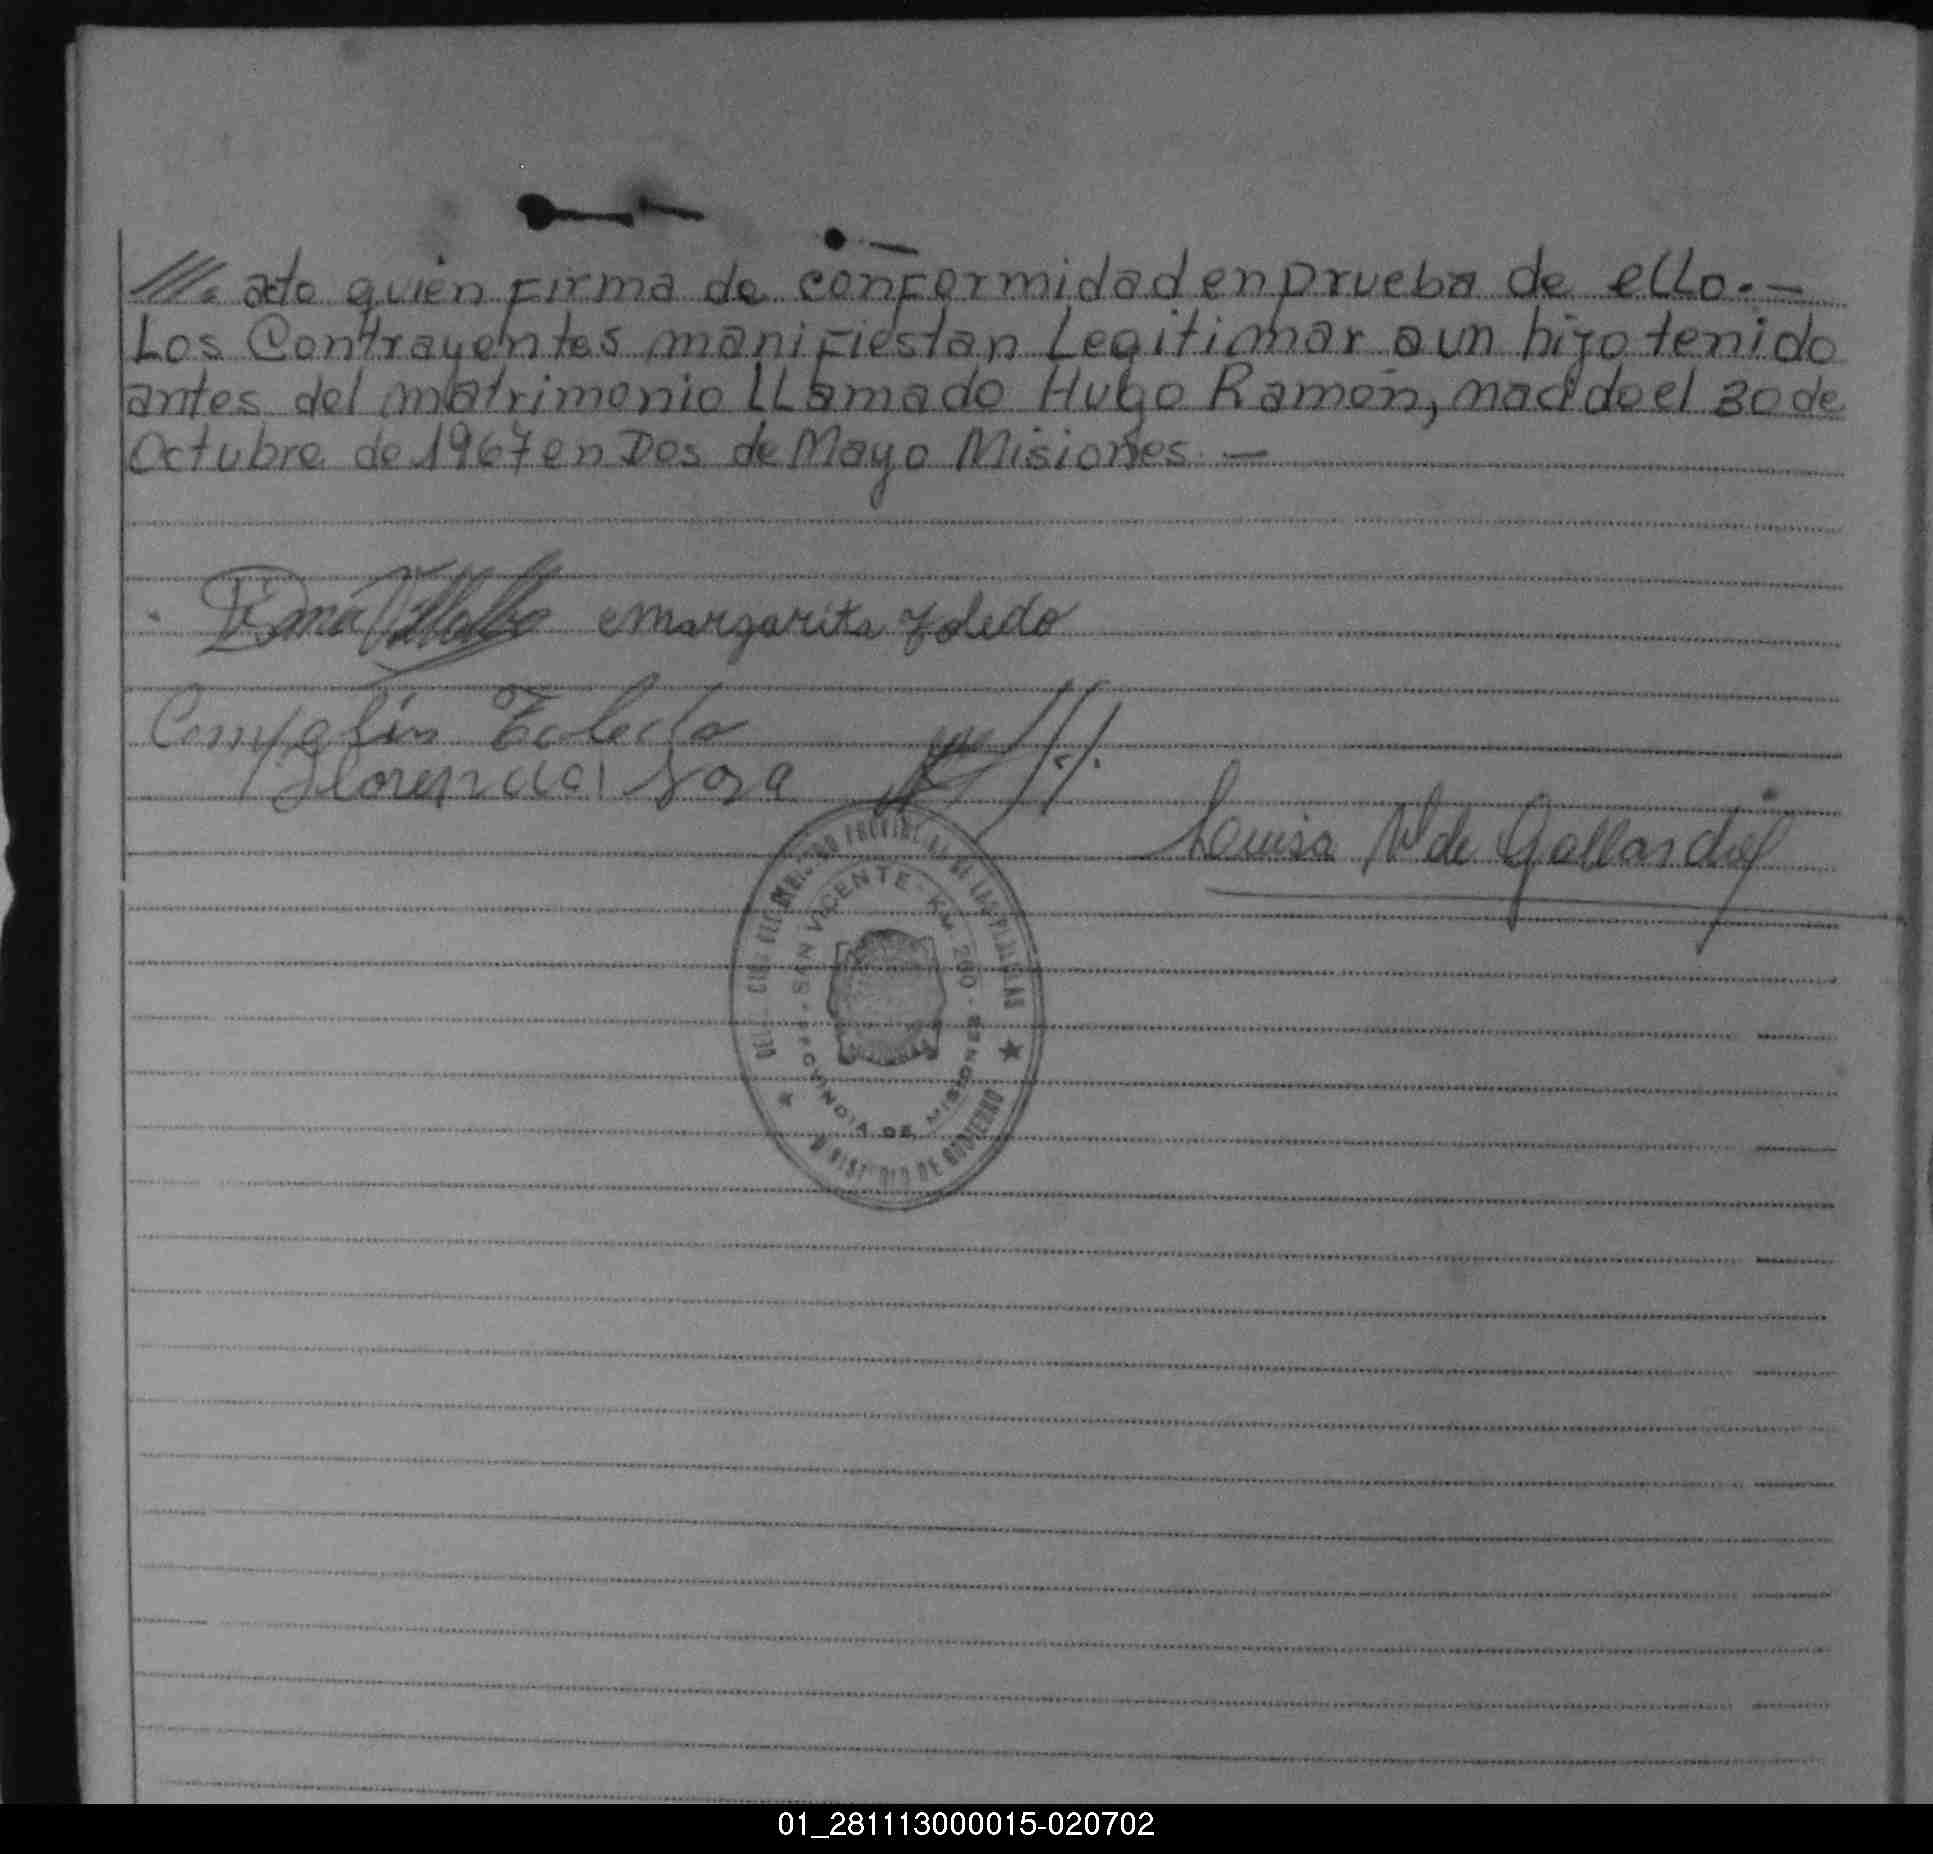 ///. acto quien firma de conformidad en prueba de ello.-
Los Contrayentes manifiestan Legitimar a un hijo tenido
antes del matrimonio LLamado Hugo Ramón, nacido el 30 de
Octubre de 1967 en Dos de Mayo Misiones.-
Villalba Margarita Toledo
Toledo
Florencia Sosa
//.
Luisa de Gallardo
PROVINCIAL DE LAS PERSONAS
SAN VICENTE - Km 200 -
PROVINCIA DE MISIONES
MINISTERIO DE GOBIERNO
01_281113000015-020702